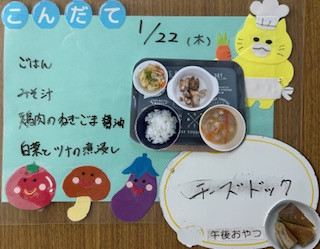 こんだて
1/22 (木)
ごはん
みそ汁
鶏肉のねぎごま醤油
白菜とツナの煮浸し
チーズドック
午後おやつ